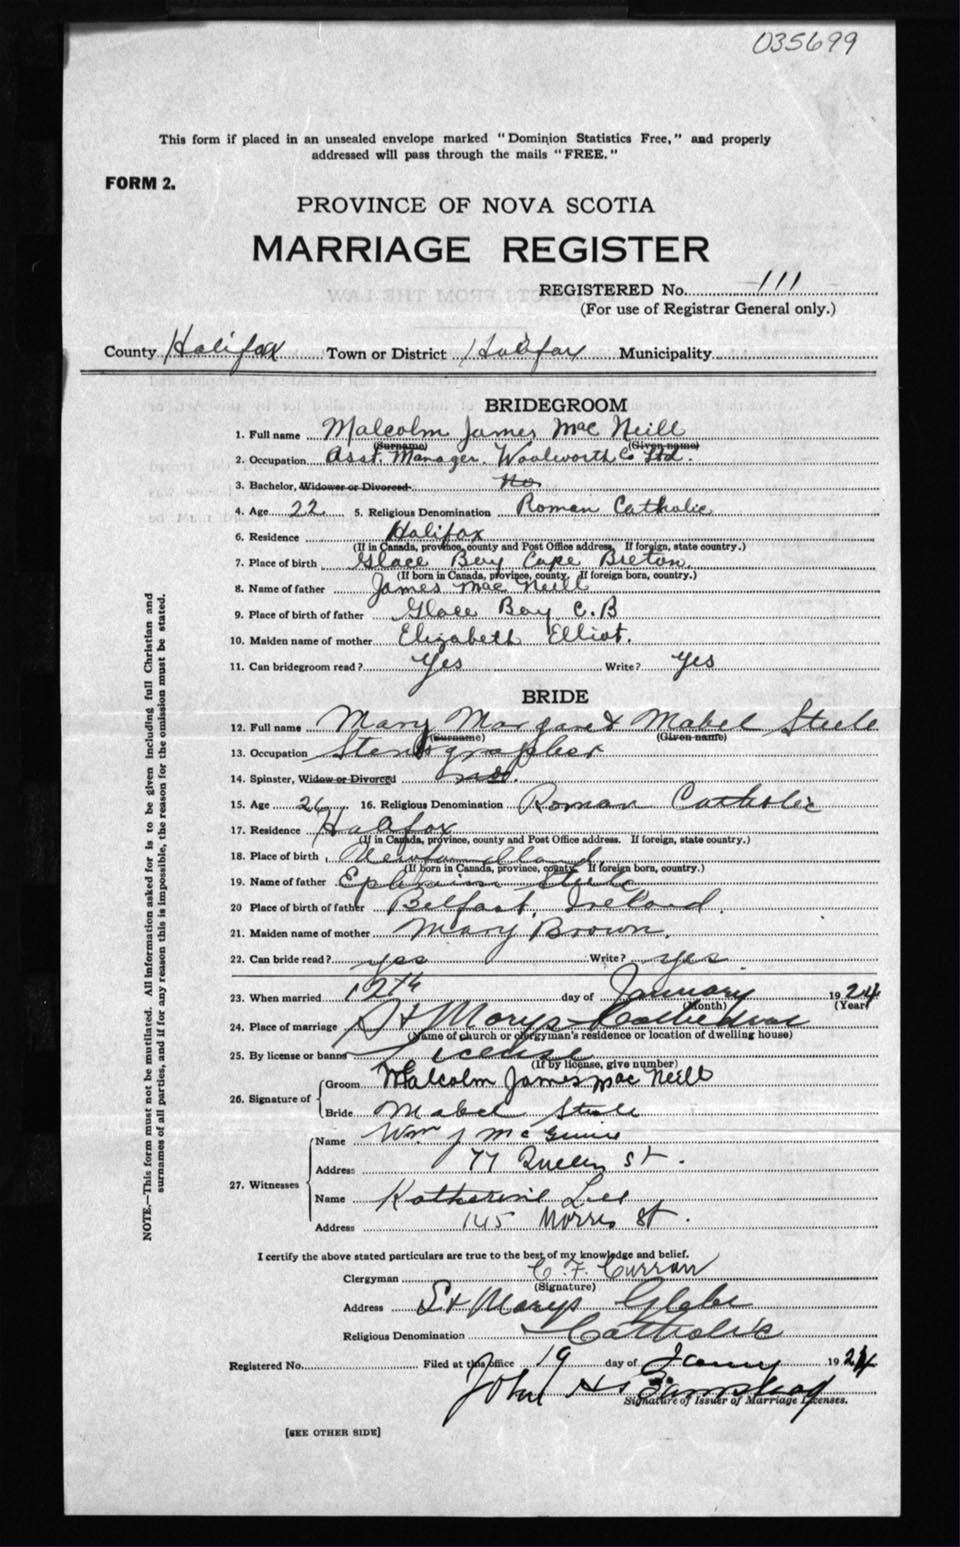 035699
This form if placed in an unsealed envelope marked "Dominion Statistics Free," and properly
addressed will pass through the mails "FREE."
FORM 2.
PROVINCE OF NOVA SCOTIA
MARRIAGE REGISTER
REGISTERED No. 111
(For use of Registrar General only.)
County Halifax Town or District Halifax Municipality
BRIDEGROOM
1. Full name Malcolm James Mac Neill
(Surname) (Given name)
2. Occupation Asst. Manager. Woolworth Co Ltd.
3. Bachelor, Widower or Divorced
4. Age 22 5. Religious Denomination Roman Catholic
6. Residence Halifax
(If in Canada, province, county and Post Office address. If foreign, state country.)
7. Place of birth Glace Bay Cape Breton
(If born in Canada, province, county. If foreign born, country.)
8. Name of father James Mac Neill
9. Place of birth of father Glace Bay C.B
10. Maiden name of mother Elizabeth Elliot.
11. Can bridegroom read? Yes Write? Yes
BRIDE
12. Full name Mary Margaret Mabel Steele
(Surname) (Given name)
13. Occupation Stenographer
14. Spinster, Widow or Divorced
15. Age 26 16. Religious Denomination Roman Catholic
17. Residence Halifax
(If in Canada, province, county and Post Office address. If foreign, state country.)
18. Place of birth Newfoundland
(If born in Canada, province, county. If foreign born, country.)
19. Name of father Ephraim Steele
20 Place of birth of father Belfast, Ireland.
21. Maiden name of mother Mary Brown.
22. Can bride read? yes Write? yes.
23. When married 12th day of January 1924
(Month) (Year)
24. Place of marriage St Marys Cathedral
(Name of church or clergyman's residence or location of dwelling house)
25. By license or banns License
(If by license, give number)
26. Signature of
Groom Malcolm James Mac Neill
Bride Mabel Steele
27. Witnesses
Name Wm J McGuire
Address 77 Queen St.
Name Katherine
Address 145 Morris St.
I certify the above stated particulars are true to the best of my knowledge and belief.
Clergyman C. F. Curran
(Signature)
Address St Marys Glebe
Religious Denomination Catholic
Registered No. Filed at this office 19 day of Jany 1924
John H
Signature of Issuer of Marriage Licenses.
[SEE OTHER SIDE]
NOTE.—This form must not be mutilated. All information asked for is to be given including full Christian and
surnames of all parties, and if for any reason this is impossible, the reason for the omission must be stated.